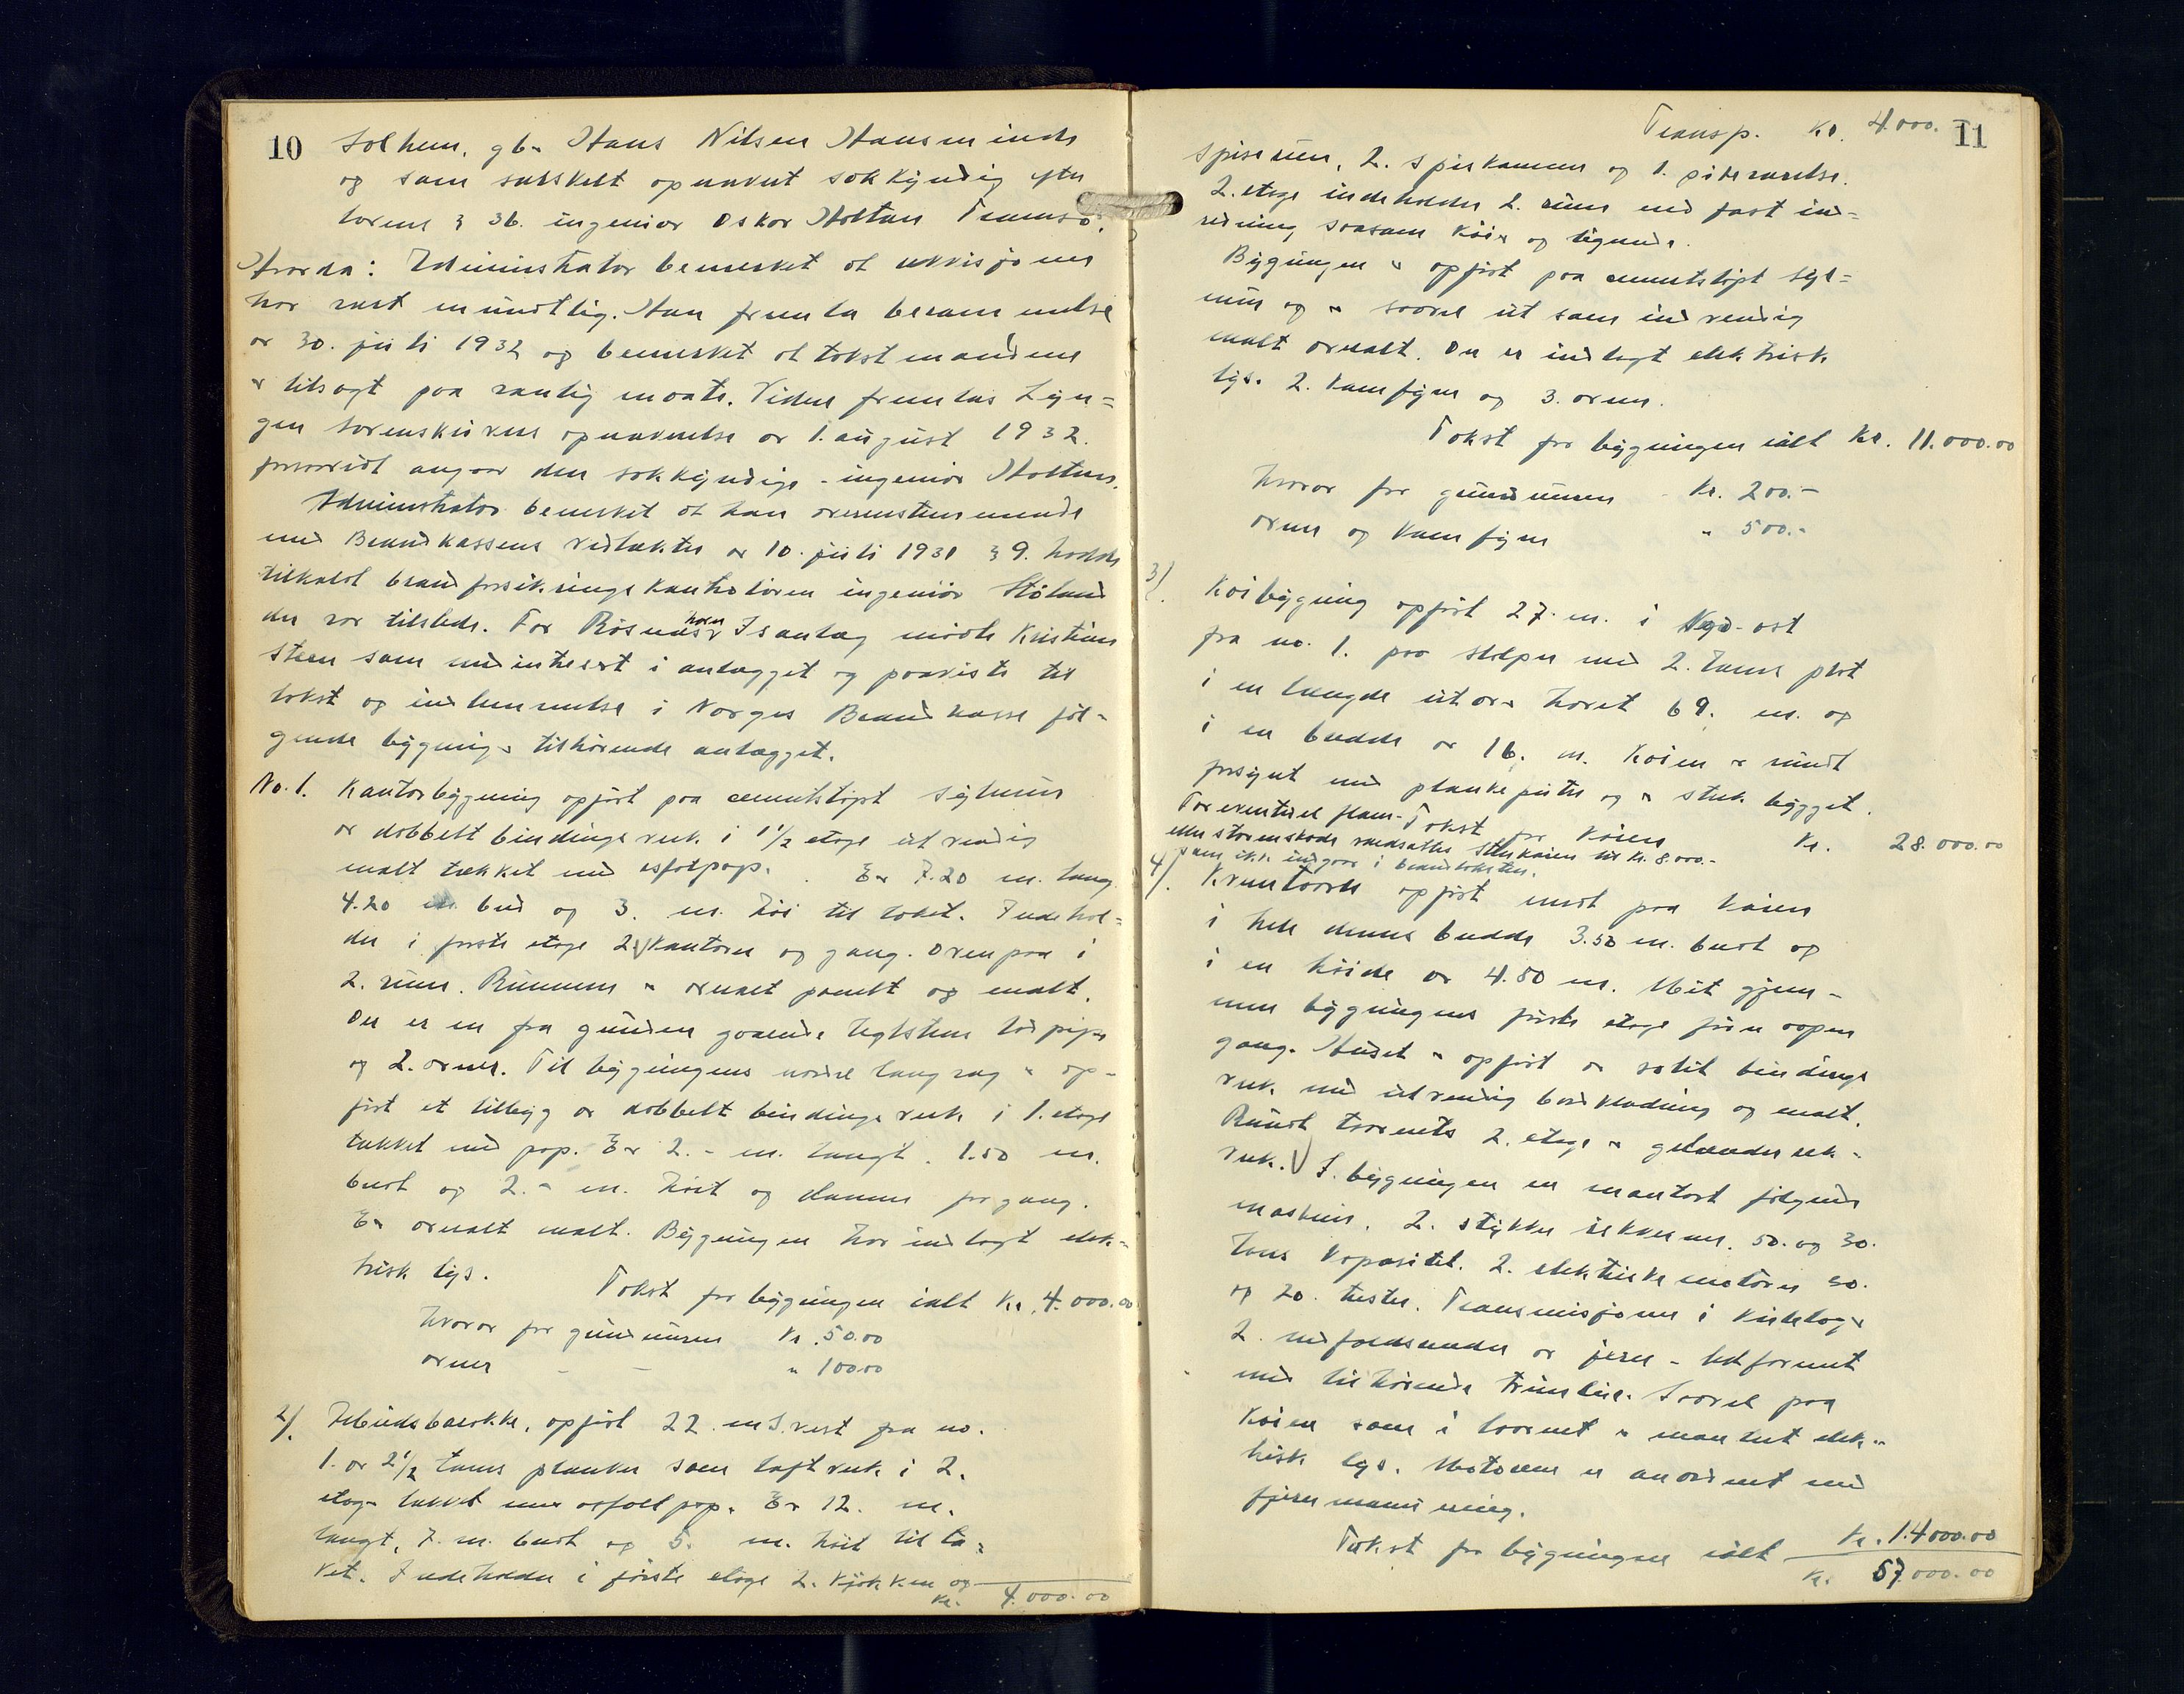 10
Solhem, gbr Hans Nilsen Hansminde
og som særskilt opnævnt sakkyndig efter
lovens § 36. ingeniør Oskar Holtan Tromsø.
Hvorda: Administrator bemerket at rekvisjonen
har vært mundtlig. Han fremla berammelse
av 30. juli 1932 og bemerket at takstmændene
er tilsagt paa vanlig maate. Videre fremlas Lyn=
gen sorenskriveres opnævnelse av 1. august 1932.
forsaavidt angaar den sakkyndige - ingeniør Holtan.
Administrator bemerket at han overenstemmende
med Brandkassens vedtækter av 10. juli 1931 § 9. hadde
tilkaldt brandforsikringskontroløren ingeniør Høland
der var tilstede. For Røsnæs havn Isanlæg møtte Kristian
Steen som medinteressert i anlægget og paaviste til
takst og indlemmelse i Norges Brandkasse føl-
gende bygninger tilhørende anlægget.
No. 1. Kontorbygning opført paa cementstøpt sylmur
av dobbelt bindingsverk i 1 1/2 etage utvendig
malt tækket med asfaltpap. Er 7.20 m. lang
4.20 m. bred og 3. m. høi til taket. Indehol=
der i første etage 2 kontorer og gang. Ovenpaa i
2. rum. Rummene er ovnalt panelt og malt.
Der er en fra grunden gaaende teglstens ildpipe
og 2. ovner. Til bygningens nordre langvæg er op-
ført et tilbygg av dobbelt bindingsverk i 1. etage
tækket med pap. Er 2.- m. langt. 1.50 m.
bredt og 2.- m. høit og danner forgang.
Er overalt malt. Bygningen har indlagt elek-
trisk lys.
Takst for bygningen ialt Kr. 4.000.00
hvorav for grundmuren Kr. 50.00
ovner - - " 100.00
2/. Arbeidsbarakke, opført 22. m S.vest fra no.
1. av 2 1/2 toms planker som laftverk i 2.
etager tækket med asfaltpap. Er 12. m.
langt, 7. m. bredt og 5. m. høit til ta=
ket. Indeholder i første etage 2. kjøkken og
Kr. 4.000.00
11
Transp. Kr. 4.000.-
spiserum, 2. spiskammer og 1. pikeværelse.
2. etage indeholder 2. rum med fast ind=
redning saasom køier og lignende.
Bygningen er opført paa cementstøpt syl=
mur og er saavel ut som indvendig
malt overalt. Der er indlagt elektrisk
lys. 2. komfyrer og 3. ovner.
Takst for bygningen ialt Kr. 11.000.00
hvorav for grundmuren - Kr. 200.-
ovner og komfyrer " 500.-
3/. Kaibygning opført 27. m. i Syd-ost
fra no. 1. paa stolper med 2. toms plat
i en længde utover havet 69. m. og
i en bredde av 16. m. Kaien er rundt
forsynt med plankeputer og er sterk bygget.
Takst for kaien Kr. 28.000.00
For eventuel flom-
eller stormskade værdsættes selve kaien til Kr. 8.000.-
som ikke indgaar i brandtaksten.
4/. Knusetaarn opført midt paa kaien
i hele dennes bredde 3.50 m. bredt og
i en høide av 4.80 m. Midt gjen-
nem bygningens første etage fører aapen
gang. Huset er opført av solit bindings
verk med utvendig bordklædning og malt.
Rundt taarnets 2. etage er gelænder rek-
verk. I bygningen er montert følgende
maskiner. 2. stykker iskverner. 50. og 30.
tons kapasitet. 2. elektriske motorer 30.
og 20. hester. Transmisjoner i kulelager
2. nedfaldsrender av jern - utformet
med tilhørende trumler. Saavel paa
kaien som i taarnet er montert elek-
trisk lys. Motorene er anordnet med
fjernmanøvrering.
Takst for bygningen ialt Kr. 14.000.00
Kr. 57.000.00